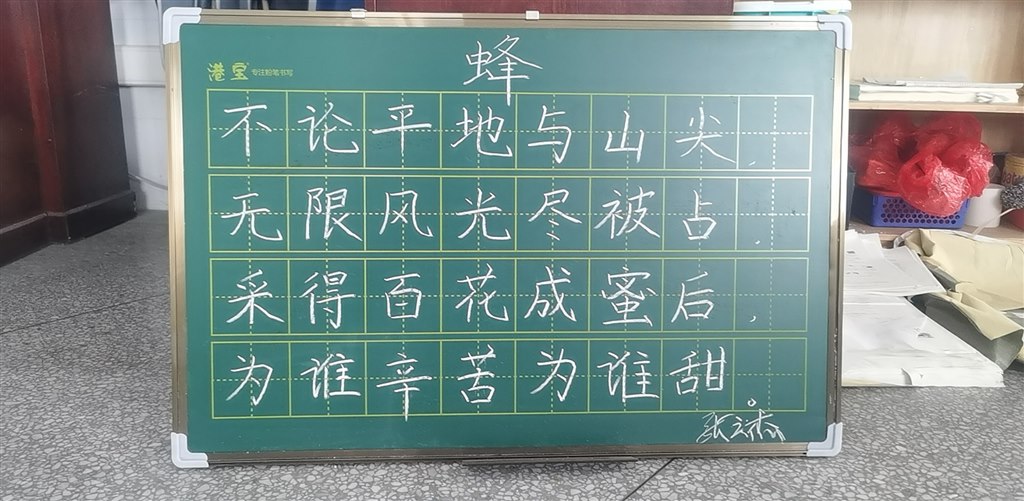 蜂
港宝 专注粉笔书写
不论平地与山尖，
无限风光尽被占，
采得百花成蜜后，
为谁辛苦为谁甜。